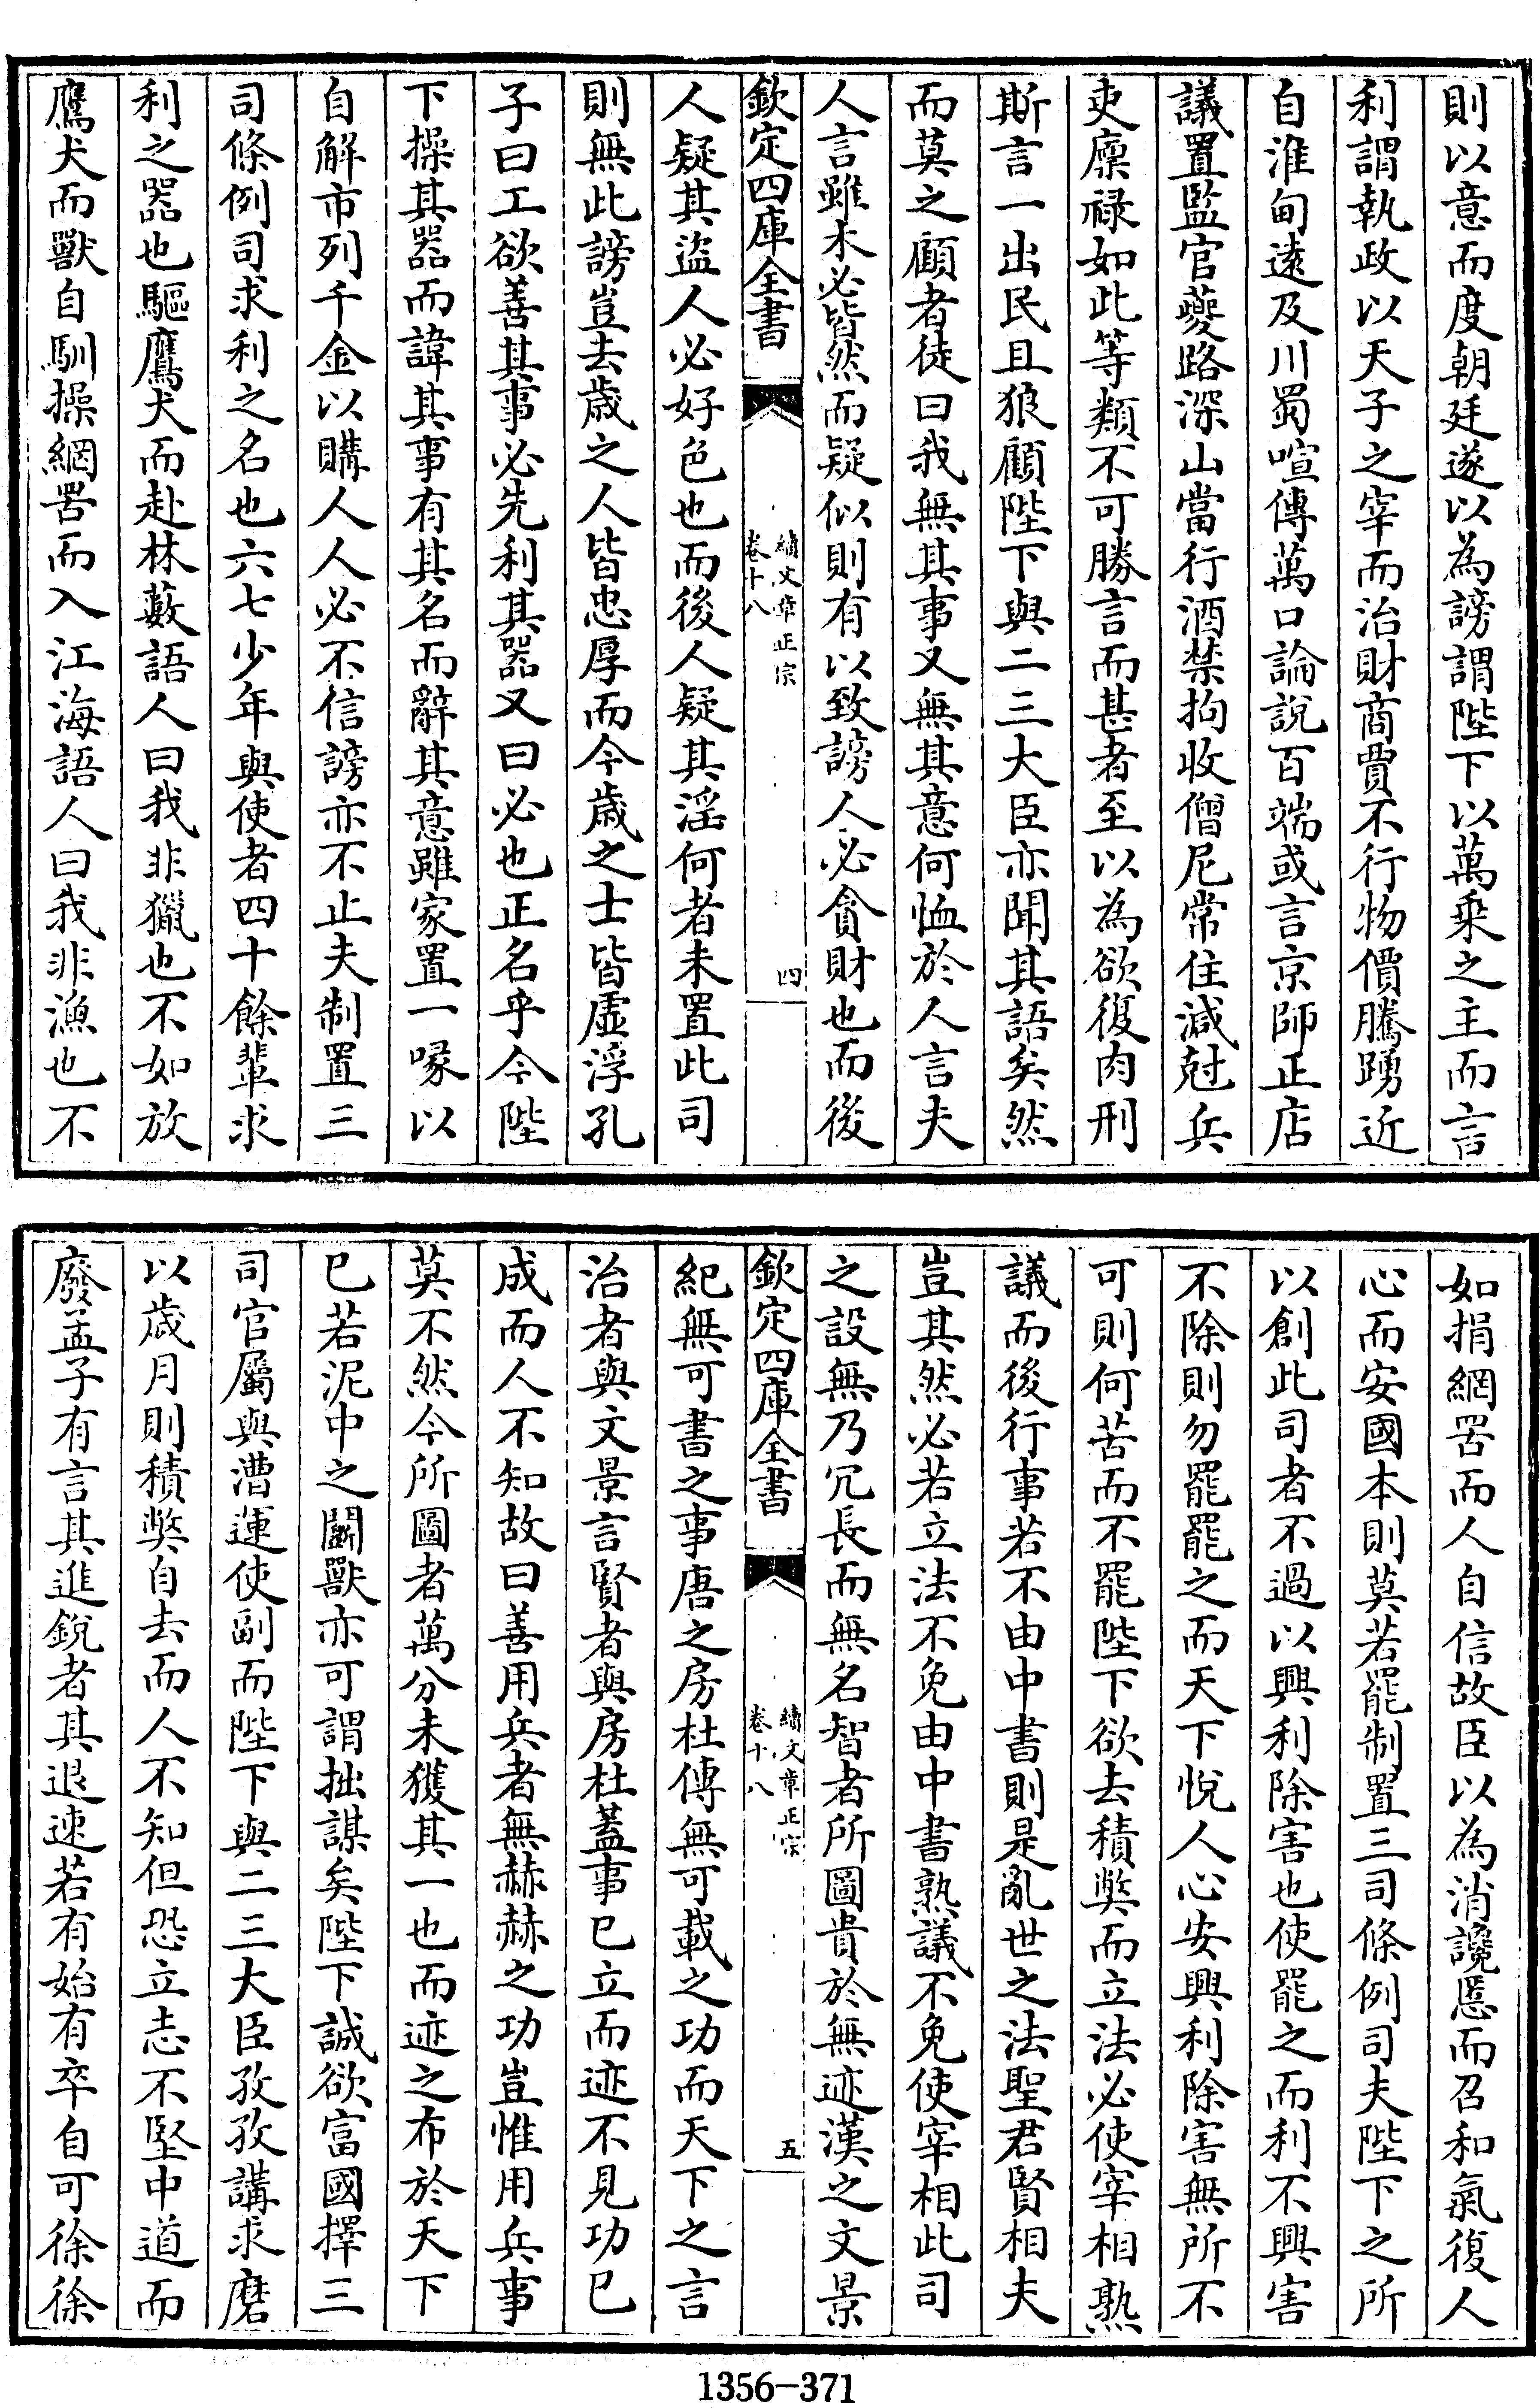 則以意而度朝廷遂以為謗謂陛下以萬乘之主而言
利謂執政以天子之宰而治財商賈不行物價騰踴近
自淮甸遠及川蜀喧傳萬口論說百端或言京師正店
議置監官夔路深山當行酒禁拘收僧尼常住減尅兵
吏廪禄如此等類不可勝言而甚者至以為欲復肉刑
斯言一出民且狼顧陛下與二三大臣亦聞其語矣然
而莫之顧者徒曰我無其事又無其意何恤於人言夫
人言雖未必皆然而疑似則有以致謗人必貪財也而後
欽定四庫全書
續文章正宗
卷十八
四
人疑其盗人必好色也而後人疑其淫何者未置此司
則無此謗豈去歲之人皆忠厚而今歲之士皆虛浮孔
子曰工欲善其事必先利其器又曰必也正名乎今陛
下操其器而諱其事有其名而辭其意雖家置一喙以
自解市列千金以購人人必不信謗亦不止夫制置三
司條例司求利之名也六七少年與使者四十餘輩求
利之器也驅鷹犬而赴林藪語人曰我非獵也不如放
鷹犬而獸自馴操網罟而入江海語人曰我非漁也不
如捐網罟而人自信故臣以為消讒慝而召和氣復人
心而安國本則莫若罷制置三司條例司夫陛下之所
以創此司者不過以興利除害也使罷之而利不興害
不除則勿罷罷之而天下悅人心安興利除害無所不
可則何苦而不罷陛下欲去積弊而立法必使宰相熟
議而後行事若不由中書則是亂世之法聖君賢相夫
豈其然必若立法不免由中書熟議不免使宰相此司
之設無乃冗長而無名智者所圖貴於無迹漢之文景
欽定四庫全書
續文章正宗
卷十八
五
紀無可書之事唐之房杜傳無可載之功而天下之言
治者與文景言賢者與房杜蓋事已立而迹不見功已
成而人不知故曰善用兵者無赫赫之功豈惟用兵事
莫不然今所圖者萬分未獲其一也而迹之布於天下
已若泥中之鬭獸亦可謂拙謀矣陛下誠欲富國擇三
司官屬與漕運使副而陛下與二三大臣孜孜講求磨
以歲月則積弊自去而人不知但恐立志不堅中道而
廢孟子有言其進銳者其退速若有始有卒自可徐徐
1356-371